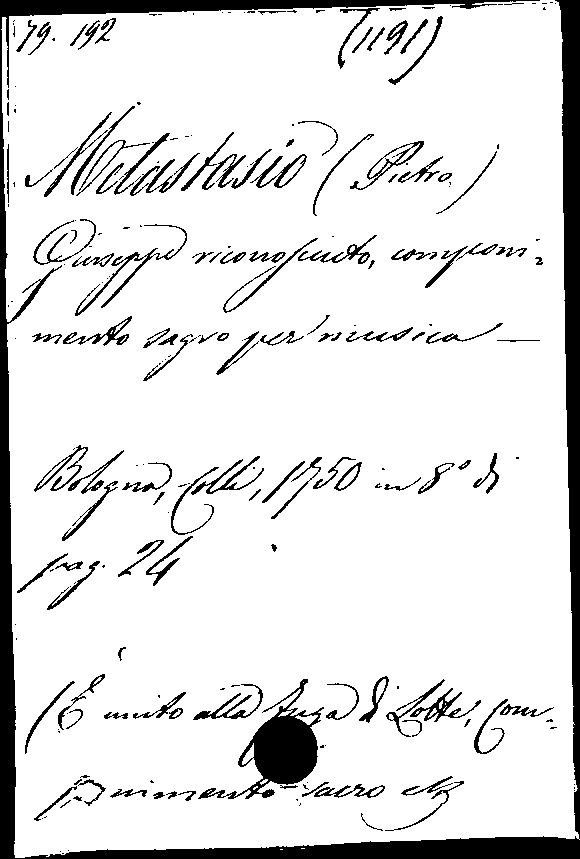 79. 192 (1191)
Metastasio (Pietro)
Giuseppe riconosciuto, componi-
mento sagro per musica —
Bologna, Colli, 1750 in 8° di
pag. 24
(È unito alla fuga di Lotte, Com-
ponimento sacro etc